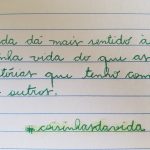 da dá mais sentido à
nha vida do que as
tórias que tenho com
s outros.
#coisinhasdavida